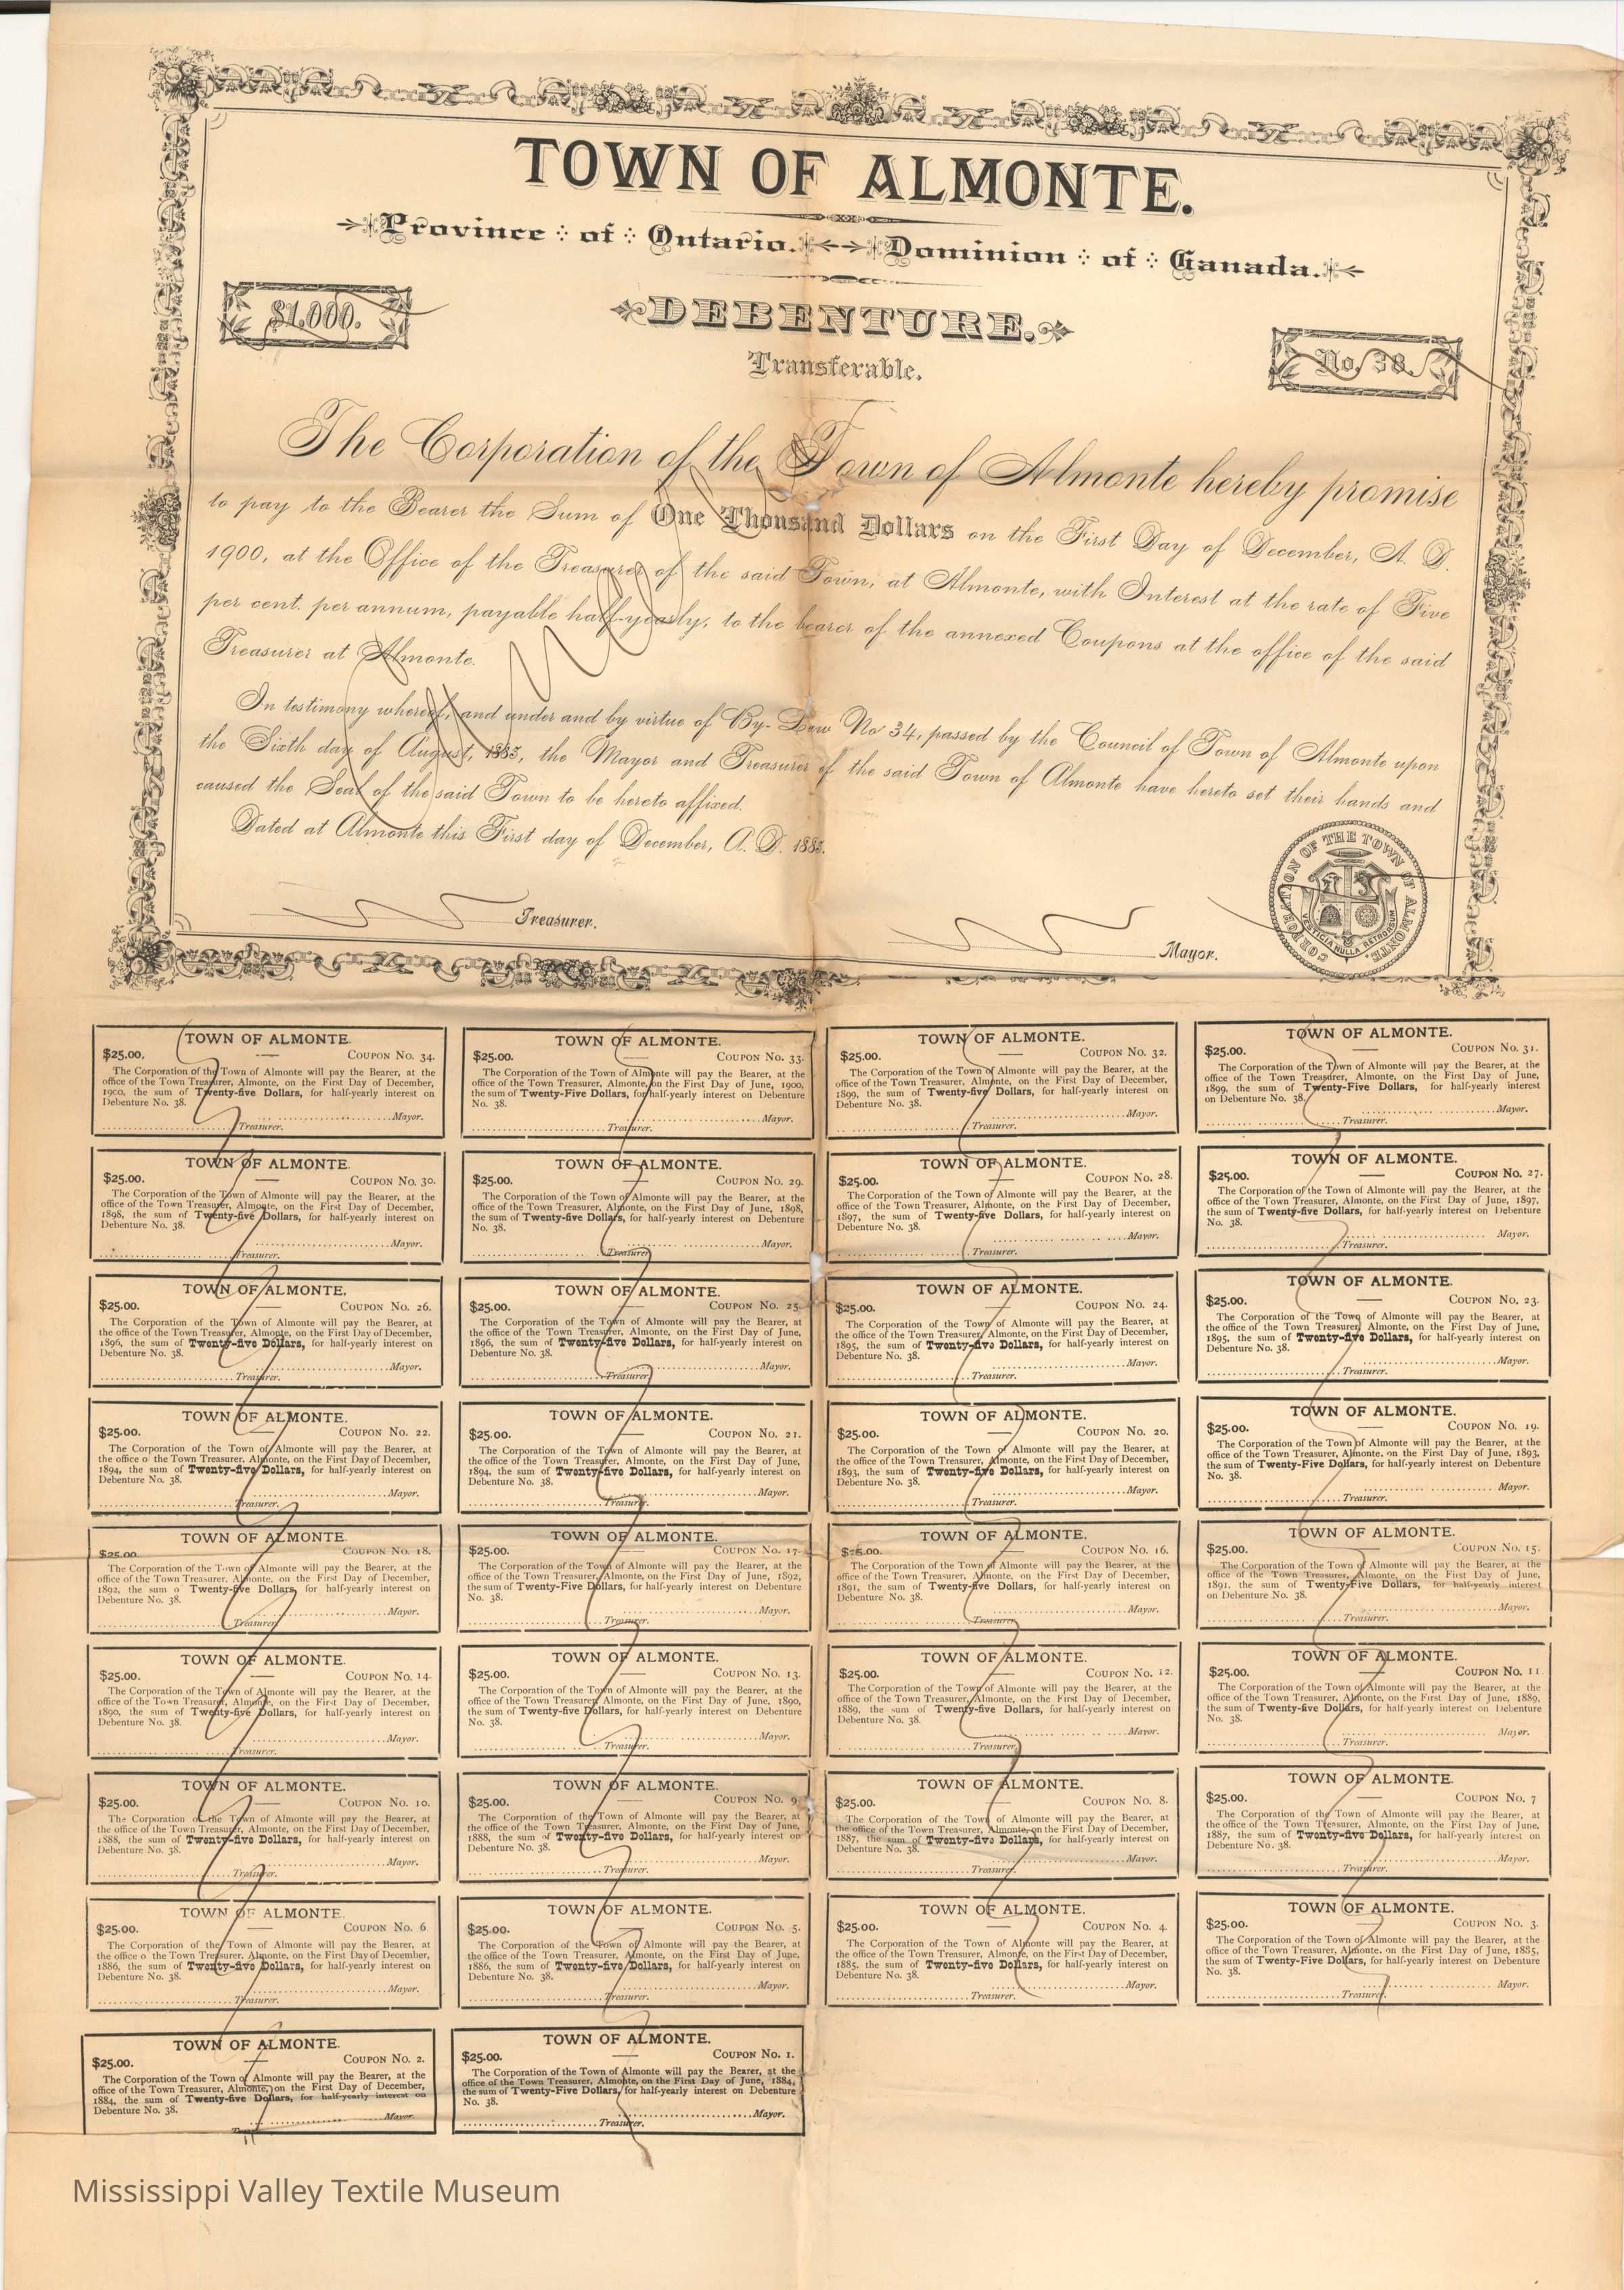 TOWN OF ALMONTE.
Province of Ontario. Dominion of Canada.
$1,000.
DEBENTURE.
Transferable.
No. 38.
The Corporation of the Town of Almonte hereby promise
to pay to the Bearer the Sum of One Thousand Dollars on the First Day of December, A. D.
1900, at the Office of the Treasurer of the said Town, at Almonte, with Interest at the rate of Five
per cent. per annum, payable half-yearly, to the bearer of the annexed Coupons at the office of the said
Treasurer at Almonte.
In testimony whereof, and under and by virtue of By-Law No 34, passed by the Council of Town of Almonte upon
the Sixth day of August, 1883, the Mayor and Treasurer of the said Town of Almonte have hereto set their hands and
caused the Seal of the said Town to be hereto affixed.
Dated at Almonte this First day of December, A. D. 1883.
Treasurer.
Mayor.
CORPORATION OF THE TOWN OF ALMONTE.
VESTIGIA NULLA RETRORSUM
TOWN OF ALMONTE.
$25.00. COUPON No. 34.
The Corporation of the Town of Almonte will pay the Bearer, at the
office of the Town Treasurer, Almonte, on the First Day of December,
1900, the sum of Twenty-five Dollars, for half-yearly interest on
Debenture No. 38.
Mayor.
Treasurer.
TOWN OF ALMONTE.
$25.00. COUPON No. 33.
The Corporation of the Town of Almonte will pay the Bearer, at the
office of the Town Treasurer, Almonte, on the First Day of June, 1900,
the sum of Twenty-Five Dollars, for half-yearly interest on Debenture
No. 38.
Mayor.
Treasurer.
TOWN OF ALMONTE.
$25.00. COUPON No. 32.
The Corporation of the Town of Almonte will pay the Bearer, at the
office of the Town Treasurer, Almonte, on the First Day of December,
1899, the sum of Twenty-five Dollars, for half-yearly interest on
Debenture No. 38.
Mayor.
Treasurer.
TOWN OF ALMONTE.
$25.00. COUPON No. 31.
The Corporation of the Town of Almonte will pay the Bearer, at the
office of the Town Treasurer, Almonte, on the First Day of June,
1899, the sum of Twenty-Five Dollars, for half-yearly interest
on Debenture No. 38.
Mayor.
Treasurer.
TOWN OF ALMONTE.
$25.00. COUPON No. 30.
The Corporation of the Town of Almonte will pay the Bearer, at the
office of the Town Treasurer, Almonte, on the First Day of December,
1898, the sum of Twenty-five Dollars, for half-yearly interest on
Debenture No. 38.
Mayor.
Treasurer.
TOWN OF ALMONTE.
$25.00. COUPON No. 29.
The Corporation of the Town of Almonte will pay the Bearer, at the
office of the Town Treasurer, Almonte, on the First Day of June, 1898,
the sum of Twenty-five Dollars, for half-yearly interest on Debenture
No. 38.
Mayor.
Treasurer.
TOWN OF ALMONTE.
$25.00. COUPON No. 28.
The Corporation of the Town of Almonte will pay the Bearer, at the
office of the Town Treasurer, Almonte, on the First Day of December,
1897, the sum of Twenty-five Dollars, for half-yearly interest on
Debenture No. 38.
Mayor.
Treasurer.
TOWN OF ALMONTE.
$25.00. COUPON No. 27.
The Corporation of the Town of Almonte will pay the Bearer, at the
office of the Town Treasurer, Almonte, on the First Day of June, 1897,
the sum of Twenty-five Dollars, for half-yearly interest on Debenture
No. 38.
Mayor.
Treasurer.
TOWN OF ALMONTE.
$25.00. COUPON No. 26.
The Corporation of the Town of Almonte will pay the Bearer, at
the office of the Town Treasurer, Almonte, on the First Day of December,
1896, the sum of Twenty-five Dollars, for half-yearly interest on
Debenture No. 38.
Mayor.
Treasurer.
TOWN OF ALMONTE.
$25.00. COUPON No. 25
The Corporation of the Town of Almonte will pay the Bearer, at
the office of the Town Treasurer, Almonte, on the First Day of June,
1896, the sum of Twenty-five Dollars, for half-yearly interest on
Debenture No. 38.
Mayor.
Treasurer.
TOWN OF ALMONTE.
$25.00. COUPON No. 24.
The Corporation of the Town of Almonte will pay the Bearer, at
the office of the Town Treasurer, Almonte, on the First Day of December,
1895, the sum of Twenty-five Dollars, for half-yearly interest on
Debenture No. 38.
Mayor.
Treasurer.
TOWN OF ALMONTE.
$25.00. COUPON No. 23.
The Corporation of the Town of Almonte will pay the Bearer, at
the office of the Town Treasurer, Almonte, on the First Day of June,
1895, the sum of Twenty-five Dollars, for half-yearly interest on
Debenture No. 38.
Mayor.
Treasurer.
TOWN OF ALMONTE.
$25.00. COUPON No. 22.
The Corporation of the Town of Almonte will pay the Bearer, at
the office of the Town Treasurer, Almonte, on the First Day of December,
1894, the sum of Twenty-five Dollars, for half-yearly interest on
Debenture No. 38.
Mayor.
Treasurer.
TOWN OF ALMONTE.
$25.00. COUPON No. 21.
The Corporation of the Town of Almonte will pay the Bearer, at
the office of the Town Treasurer, Almonte, on the First Day of June,
1894, the sum of Twenty-five Dollars, for half-yearly interest on
Debenture No. 38.
Mayor.
Treasurer.
TOWN OF ALMONTE.
$25.00. COUPON No. 20.
The Corporation of the Town of Almonte will pay the Bearer, at
the office of the Town Treasurer, Almonte, on the First Day of December,
1893, the sum of Twenty-five Dollars, for half-yearly interest on
Debenture No. 38.
Mayor.
Treasurer.
TOWN OF ALMONTE.
$25.00. COUPON No. 19.
The Corporation of the Town of Almonte will pay the Bearer, at the
office of the Town Treasurer, Almonte, on the First Day of June, 1893,
the sum of Twenty-Five Dollars, for half-yearly interest on Debenture
No. 38.
Mayor.
Treasurer.
TOWN OF ALMONTE.
$25.00. COUPON No. 18.
The Corporation of the Town of Almonte will pay the Bearer, at the
office of the Town Treasurer, Almonte, on the First Day of December,
1892, the sum o Twenty-five Dollars, for half-yearly interest on
Debenture No. 38.
Mayor.
Treasurer.
TOWN OF ALMONTE.
$25.00. COUPON No. 17.
The Corporation of the Town of Almonte will pay the Bearer, at the
office of the Town Treasurer, Almonte, on the First Day of June, 1892,
the sum of Twenty-Five Dollars, for half-yearly interest on Debenture
No. 38.
Mayor.
Treasurer.
TOWN OF ALMONTE.
$25.00. COUPON No. 16.
The Corporation of the Town of Almonte will pay the Bearer, at the
office of the Town Treasurer, Almonte, on the First Day of December,
1891, the sum of Twenty-five Dollars, for half-yearly interest on
Debenture No. 38.
Mayor.
Treasurer.
TOWN OF ALMONTE.
$25.00. COUPON No. 15.
The Corporation of the Town of Almonte will pay the Bearer, at the
office of the Town Treasurer, Almonte, on the First Day of June,
1891, the sum of Twenty-Five Dollars, for half-yearly interest
on Debenture No. 38.
Mayor.
Treasurer.
TOWN OF ALMONTE.
$25.00. COUPON No. 14.
The Corporation of the Town of Almonte will pay the Bearer, at the
office of the Town Treasurer, Almonte, on the First Day of December,
1890, the sum of Twenty-five Dollars, for half-yearly interest on
Debenture No. 38.
Mayor.
Treasurer.
TOWN OF ALMONTE.
$25.00. COUPON No. 13.
The Corporation of the Town of Almonte will pay the Bearer, at the
office of the Town Treasurer, Almonte, on the First Day of June, 1890,
the sum of Twenty-five Dollars, for half-yearly interest on Debenture
No. 38.
Mayor.
Treasurer.
TOWN OF ALMONTE.
$25.00. COUPON No. 12.
The Corporation of the Town of Almonte will pay the Bearer, at the
office of the Town Treasurer, Almonte, on the First Day of December,
1889, the sum of Twenty-five Dollars, for half-yearly interest on
Debenture No. 38.
Mayor.
Treasurer.
TOWN OF ALMONTE.
$25.00. COUPON No. 11.
The Corporation of the Town of Almonte will pay the Bearer, at the
office of the Town Treasurer, Almonte, on the First Day of June, 1889,
the sum of Twenty-five Dollars, for half-yearly interest on Debenture
No. 38.
Mayor.
Treasurer.
TOWN OF ALMONTE.
$25.00. COUPON No. 10.
The Corporation of the Town of Almonte will pay the Bearer, at
the office of the Town Treasurer, Almonte, on the First Day of December,
1888, the sum of Twenty-five Dollars, for half-yearly interest on
Debenture No. 38.
Mayor.
Treasurer.
TOWN OF ALMONTE.
$25.00. COUPON No. 9
The Corporation of the Town of Almonte will pay the Bearer, at
the office of the Town Treasurer, Almonte, on the First Day of June,
1888, the sum of Twenty-five Dollars, for half-yearly interest on
Debenture No. 38.
Mayor.
Treasurer.
TOWN OF ALMONTE.
$25.00. COUPON No. 8.
The Corporation of the Town of Almonte will pay the Bearer, at
the office of the Town Treasurer, Almonte, on the First Day of December,
1887, the sum of Twenty-five Dollars, for half-yearly interest on
Debenture No. 38.
Mayor.
Treasurer.
TOWN OF ALMONTE.
$25.00. COUPON No. 7
The Corporation of the Town of Almonte will pay the Bearer, at
the office of the Town Treasurer, Almonte, on the First Day of June,
1887, the sum of Twenty-five Dollars, for half-yearly interest on
Debenture No. 38.
Mayor.
Treasurer.
TOWN OF ALMONTE.
$25.00. COUPON No. 6
The Corporation of the Town of Almonte will pay the Bearer, at
the office o the Town Treasurer, Almonte, on the First Day of December,
1886, the sum of Twenty-five Dollars, for half-yearly interest on
Debenture No. 38.
Mayor.
Treasurer.
TOWN OF ALMONTE.
$25.00. COUPON No. 5.
The Corporation of the Town of Almonte will pay the Bearer, at
the office of the Town Treasurer, Almonte, on the First Day of June,
1886, the sum of Twenty-five Dollars, for half-yearly interest on
Debenture No. 38.
Mayor.
Treasurer.
TOWN OF ALMONTE.
$25.00. COUPON No. 4.
The Corporation of the Town of Almonte will pay the Bearer, at
the office of the Town Treasurer, Almonte, on the First Day of December,
1885, the sum of Twenty-five Dollars, for half-yearly interest on
Debenture No. 38.
Mayor.
Treasurer.
TOWN OF ALMONTE.
$25.00. COUPON No. 3.
The Corporation of the Town of Almonte will pay the Bearer, at the
office of the Town Treasurer, Almonte, on the First Day of June, 1885,
the sum of Twenty-Five Dollars, for half-yearly interest on Debenture
No. 38.
Mayor.
Treasurer.
TOWN OF ALMONTE.
$25.00. COUPON No. 2.
The Corporation of the Town of Almonte will pay the Bearer, at the
office of the Town Treasurer, Almonte, on the First Day of December,
1884, the sum of Twenty-five Dollars, for half-yearly interest on
Debenture No. 38.
Mayor.
TOWN OF ALMONTE.
$25.00. COUPON No. 1.
The Corporation of the Town of Almonte will pay the Bearer, at the
office of the Town Treasurer, Almonte, on the First Day of June, 1884,
the sum of Twenty-Five Dollars, for half-yearly interest on Debenture
No. 38.
Mayor.
Treasurer.
Mississippi Valley Textile Museum